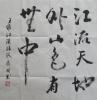 江流天地
外山色有
無中